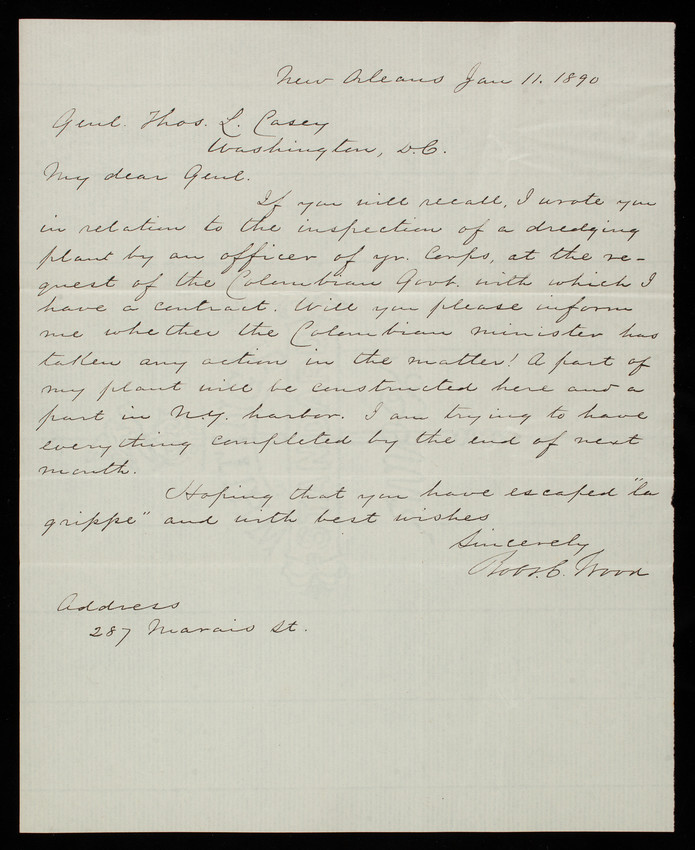 New Orleans Jan 11. 1890
Genl. Thos. L. Casey
Washington, D.C.
My dear Genl.
If you will recall, I wrote you
in relation to the inspection of a dredging
plant by an officer of yr. Corps, at the re-
quest of the Colombian Govt. with which I
have a contract. Will you please inform
me whether the Colombian minister has
taken any action in the matter! A part of
my plant will be constructed here and a
part in N.Y. harbor. I am trying to have
everything completed by the end of next
month.
Hoping that you have escaped "la
grippe" and with best wishes
Sincerely
Robt. C. Wood
Address
287 Marais St.